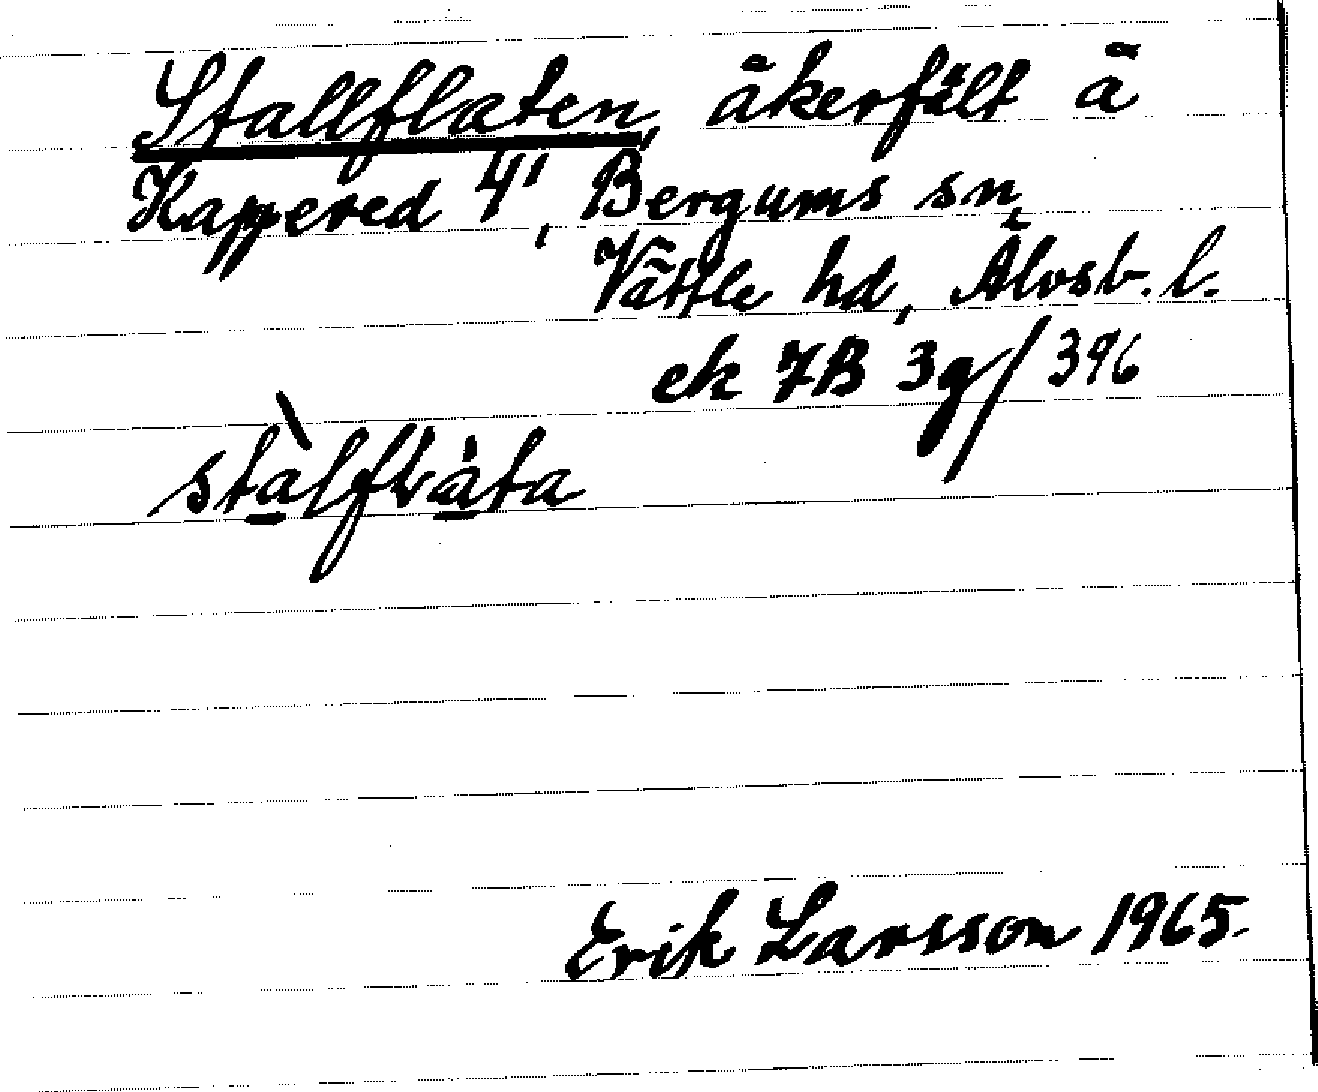 Stallflaten, åkerfält å
Kappered 4¹, Bergums sn,
Vättle hd, Älvsb. l.
ek 7B 3g/396
Erik Larsson 1965.